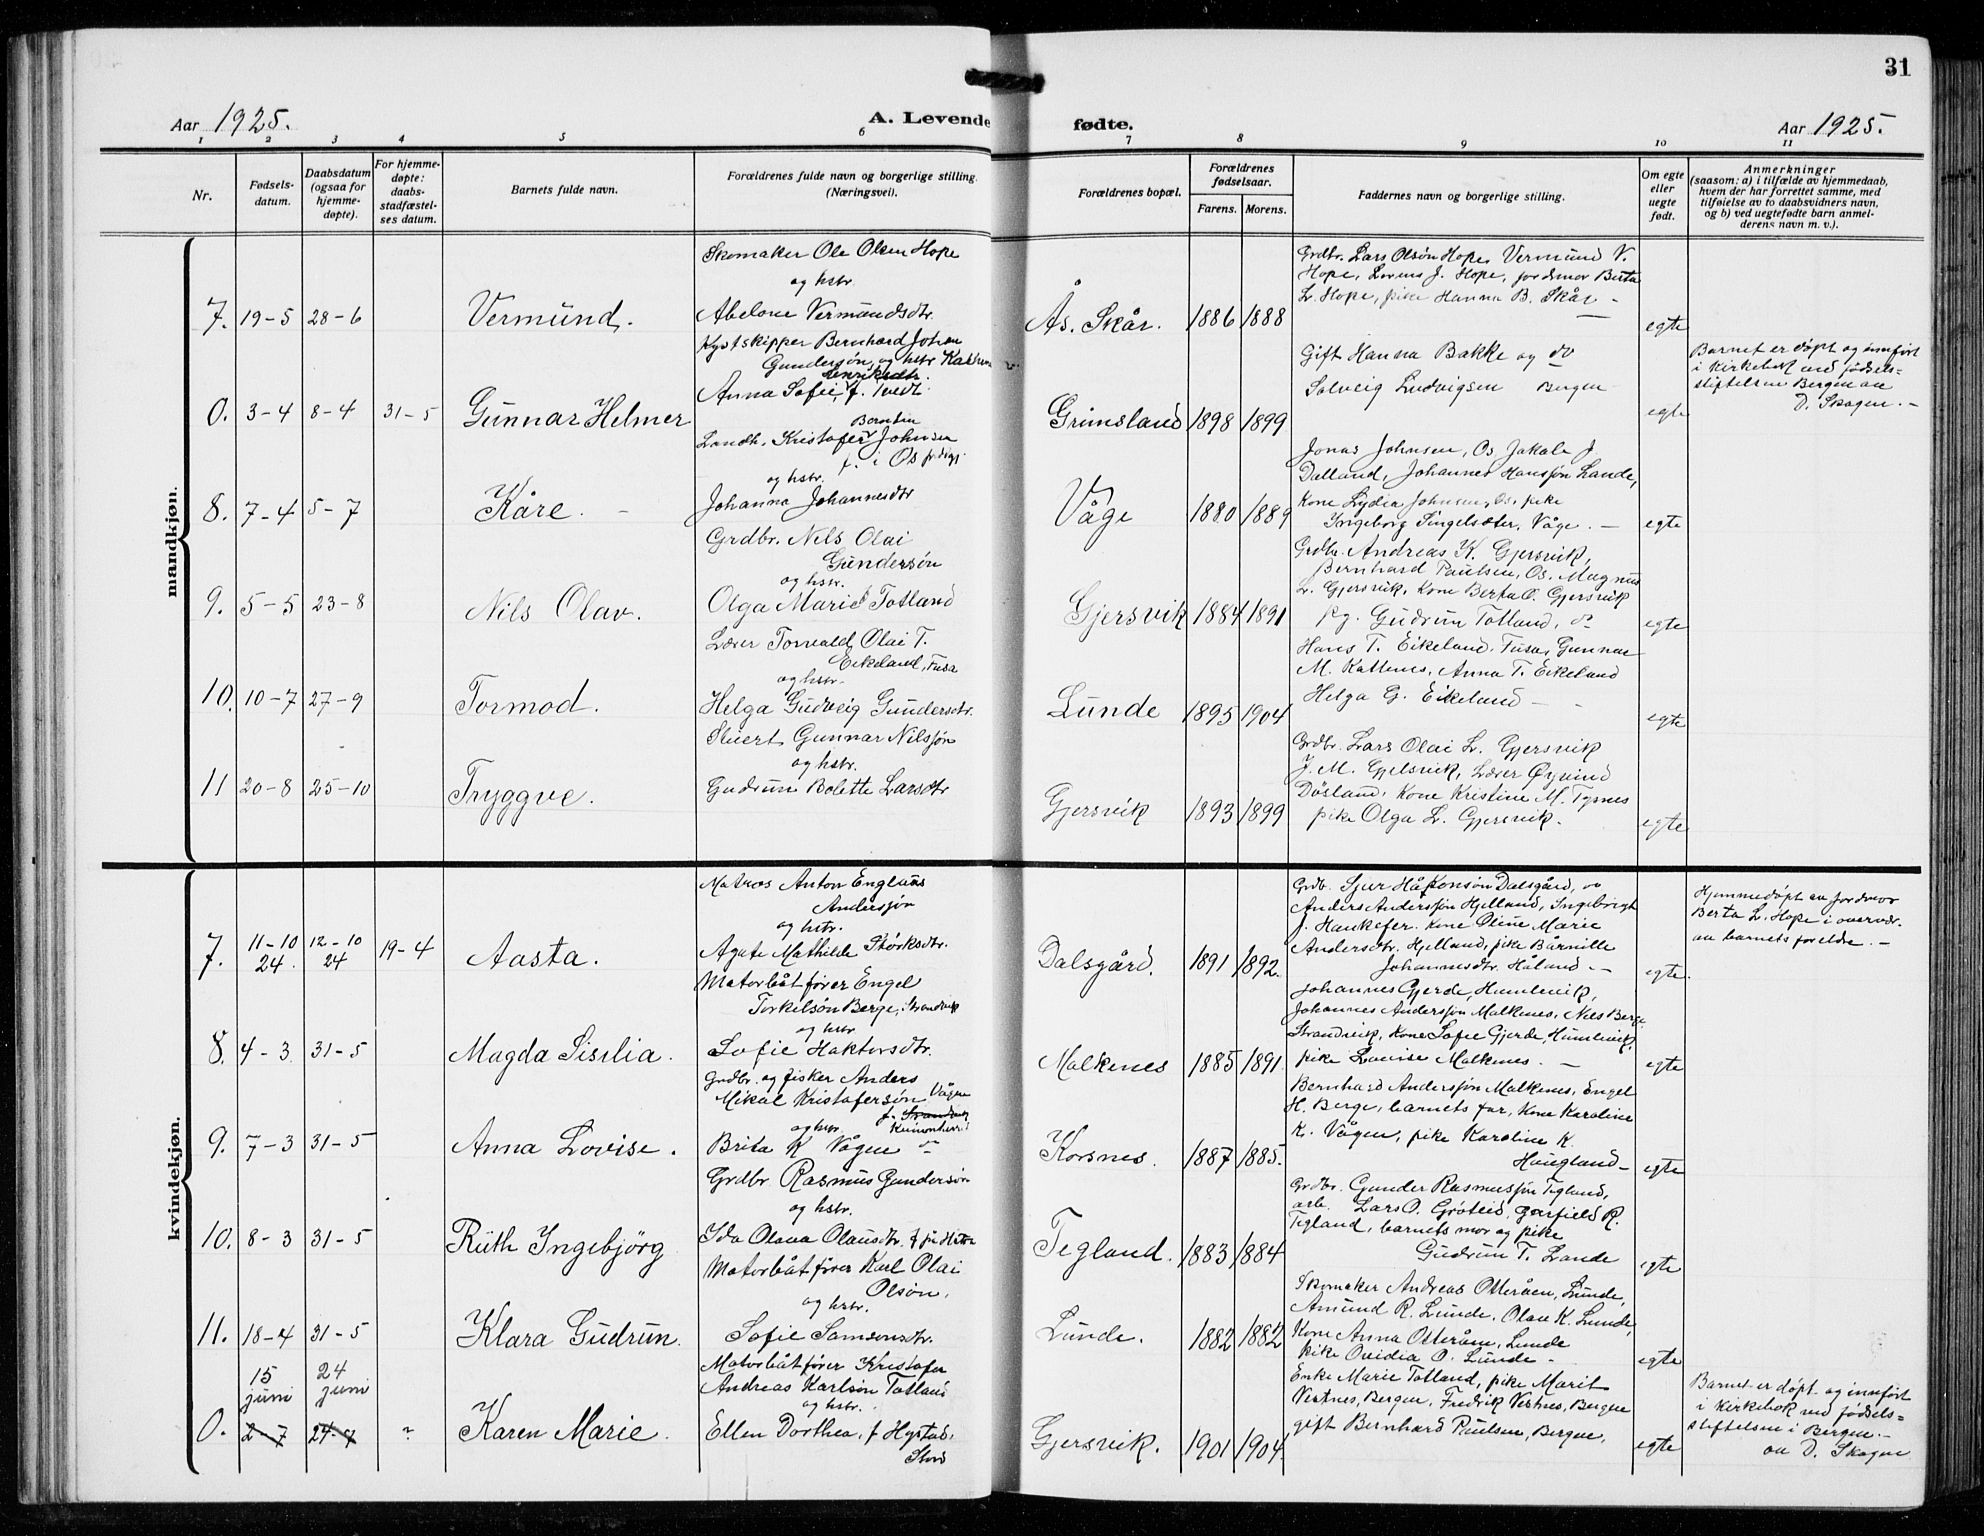 31
Aar 1925.
A. Levende fødte.
Aar 1925.
1 2 3 4 5 6 7 8 9 10 11
Nr.
Fødsels-
datum.
Daabsdatum
(ogsaa for
hjemme-
døpte).
For hjemme-
døpte:
daabs-
stadfæstel-
ses datum.
Barnets fulde navn.
Forældrenes fulde navn og borgerlige stilling.
(Næringsvei).
Forældrenes bopæl.
Forældrenes
fødselsaar.
Farens. Morens.
Faddernes navn og borgerlige stilling.
Om egte
eller
uegte
født.
Anmerkninger
(saasom: a) i tilfælde av hjemmedaab,
hvem der har forrettet samme, med
tilføielse av to daabsvidners navn,
og b) ved uegtefødte barn anmel-
derens navn m. v.).
mandkjøn.
7. 19-5 28-6 Vermund.
Skomaker Ole Olsen Hope
og hstr.
Abelone Vermundsdtr.
Ås. Skår. 1886 1888
Grdbr. Lars Olsøn Hope, Vermund V.
Hope, Lorens J. Hope, jordmor Berta
L. Hope, pike Hanna B. Skår -
egte
0. 3-4 8-4 31-5 Gunnar Helmer
Kystskipper Bernhard Johan
Gundersøn og hstr Katrina
Henriksdtr.
Anna Sofie, f. Tvedt.
Grimsland 1898 1899
Gift Hanna Bakke og do
Solveig Ludvigsen Bergen
egte
Barnet er døpt og innført
i kirkebok ved fødsels=
stiftelsen Bergen av
D. Skagen. -
8. 7-4 5-7 Kåre. -
Berntin
Landh. Kristofer Johnsen
f. i Os prdgj.
og hstr.
Johanna Johannesdtr
Våge 1880 1889
Jonas Johnsen, Os, Jakob J.
Dalland, Johannes Hanssøn Lande,
Kone Lydia Johnsen, Os, pike
Ingeborg Singelsæter, Våge. -
egte
9. 5-5 23-8 Nils Olav.
Grdbr. Nils Olai
Gundersøn
og hstr.
Olga Marie Totland
Gjersvik 1884 1891
Grdbr. Andreas K. Gjersvik,
Bernhard Paulsen, Os, Magnus
L. Gjersvik, Kone Berta O. Gjersvik
pg. Gudrun Totland, do
egte
10. 10-7 27-9 Tormod.
Lærer Torvald Olai T.
Eikeland, Fusa
og hstr.
Helga Gudveig Gundersdtr.
Lunde 1895 1904
Hans T. Eikeland, Fusa, Gunnar
M. Kattenes, Anna T. Eikeland
Helga G. Eikeland -
egte
11 20-8 25-10 Tryggve.
Stuert Gunnar Nilssøn
og hstr.
Gudrun Bolette Larsdtr
Gjersvik 1893 1899
Grdbr. Lars Olai L. Gjersvik
J. M. Gjelsvik, Lærer Øyvind
Døsland, Kone Kristine M. Tysnes
pike Olga L. Gjersvik.
egte
kvindekjøn.
7. 11-10 24. 12-10 24 19-4 Aasta.
Matros Anton Englius
Anderssøn
og hstr.
Agate Mathilde Størksdtr.
Dalsgård. 1891 1892.
Grdb. Sjur Håkonsøn Dalsgård, do
Anders Anderssøn Hjelland, Ingeborgt
J. Haukefer. Kone Oline Marie
Andersdtr. Hjelland, pike Bårnille
Johannesdtr. Håland -
egte.
Hjemmedøpt av Jordmor
Berta L. Hope i overvær.
av barnets foreldre. -
8. 4-3 31-5 Magda Sisilia.
Motorbåtfører Engel
Torkelsøn Berge, Strandvik
og hstr
Sofie Haktorsdtr.
Malkenes 1885 1891
Johannes Gjerde, Humlevik,
Johannes Anderssøn Malkenes, Nils Berge
Strandvik, Kone Sofie Gjerde, Humlevik,
pike Lovise Malkenes. -
egte
9. 7-3 31-5 Anna Lovise.
Grdbr. og fisker Anders
Mikal Kristofersøn Vågen
f. Strandvik
og hstr. Kvinnherred
Brita K Vågen do
Korsnes. 1887 1885.
Bernhard Anderssøn Malkenes, Engel
H. Berge, barnets far, Kone Karoline
K. Vågen, pike Karoline K.
Haugland -
egte
10. 8-3 31-5 Ruth Ingebjörg
Grdbr. Rasmus Gundersøn
og hstr.
Ida Olava Olausdtr.
Tegland. 1883 1884
Grdbr. Gunder Rasmussøn Tegland,
arb. Lars O. Grøteid, Garfield R.
Tegland, barnets mor og pike
Gudrun T. Lande
egte
11. 18-4 31-5 Klara Gudrun.
Motorbåtfører Karl Olai
Olsøn.
og hstr.
Sofie Samsonsdtr.
Lunde. 1882 1882
Skomaker Andreas Otteråen, Lunde,
Amund R. Lunde, Olav K. Lunde,
Kone Anna Otteråen, Lunde
pike Ovidia O. Lunde -
egte
0. 15 juni 2-7 24 juni 24-7 Karen Marie.
Motorbåtfører Kristofer
Andreas Karlsøn Totland
og hstr.
Ellen Dorthea, f Hystad,
Stord
Gjersvik. 1901 1904.
Enke Marie Totland, pike Marit
Vestnes, Bergen, Fredrik Vestnes, Bergen
gift Bernhard Paulsen, Bergen,
egte
Barnet er døpt og innført
i kirkebok ved fødsels=
stiftelsen i Bergen. -
av D. Skagen